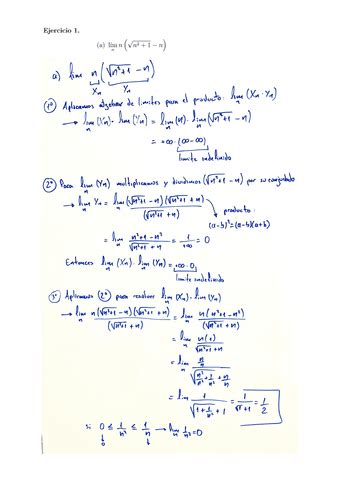 Ejercicio 1.
(a) lím_n n(√(n²+1) − n)
a) lim_n n (√(n²+1) − n)
Xn Yn
1º) Aplicamos algebra de limites para el producto: lim_n (Xn · Yn)
→ lim_n (Xn) · lim_n (Yn) = lim_n (n) · lim_n (√(n²+1) − n)
= +∞ · (∞−∞)
limite indefinido
2º) Para lim_n (Yn) multiplicamos y dividimos (√(n²+1) − n) por su conjugado
→ lim_n Yn = lim_n (√(n²+1) − n)(√(n²+1) + n) / (√(n²+1) + n)
producto:
(a−b)²=(a−b)(a+b)
= lim_n n²+1−n² / √(n²+1) + n = 1/+∞ = 0
Entonces lim_n (Xn) · lim_n (Yn) = +∞·0
limite indefinido
3º) Aplicamos (2º) para resolver lim_n (Xn) · lim_n (Yn)
→ lim_n n(√(n²+1) − n)(√(n²+1) + n) / (√(n²+1) + n) = lim_n n(n²+1−n²) / (√(n²+1) + n)
= lim_n n(1) / √(n²+1) + n
= lim_n n/n / √(n²/n² + 1/n²) + n/n
= lim_n 1 / √(1 + 1/n²) + 1 = 1/√1+1 = 1/2
si 0 ≤ 1/n² ≤ 1/n → lim_n 1/n² = 0